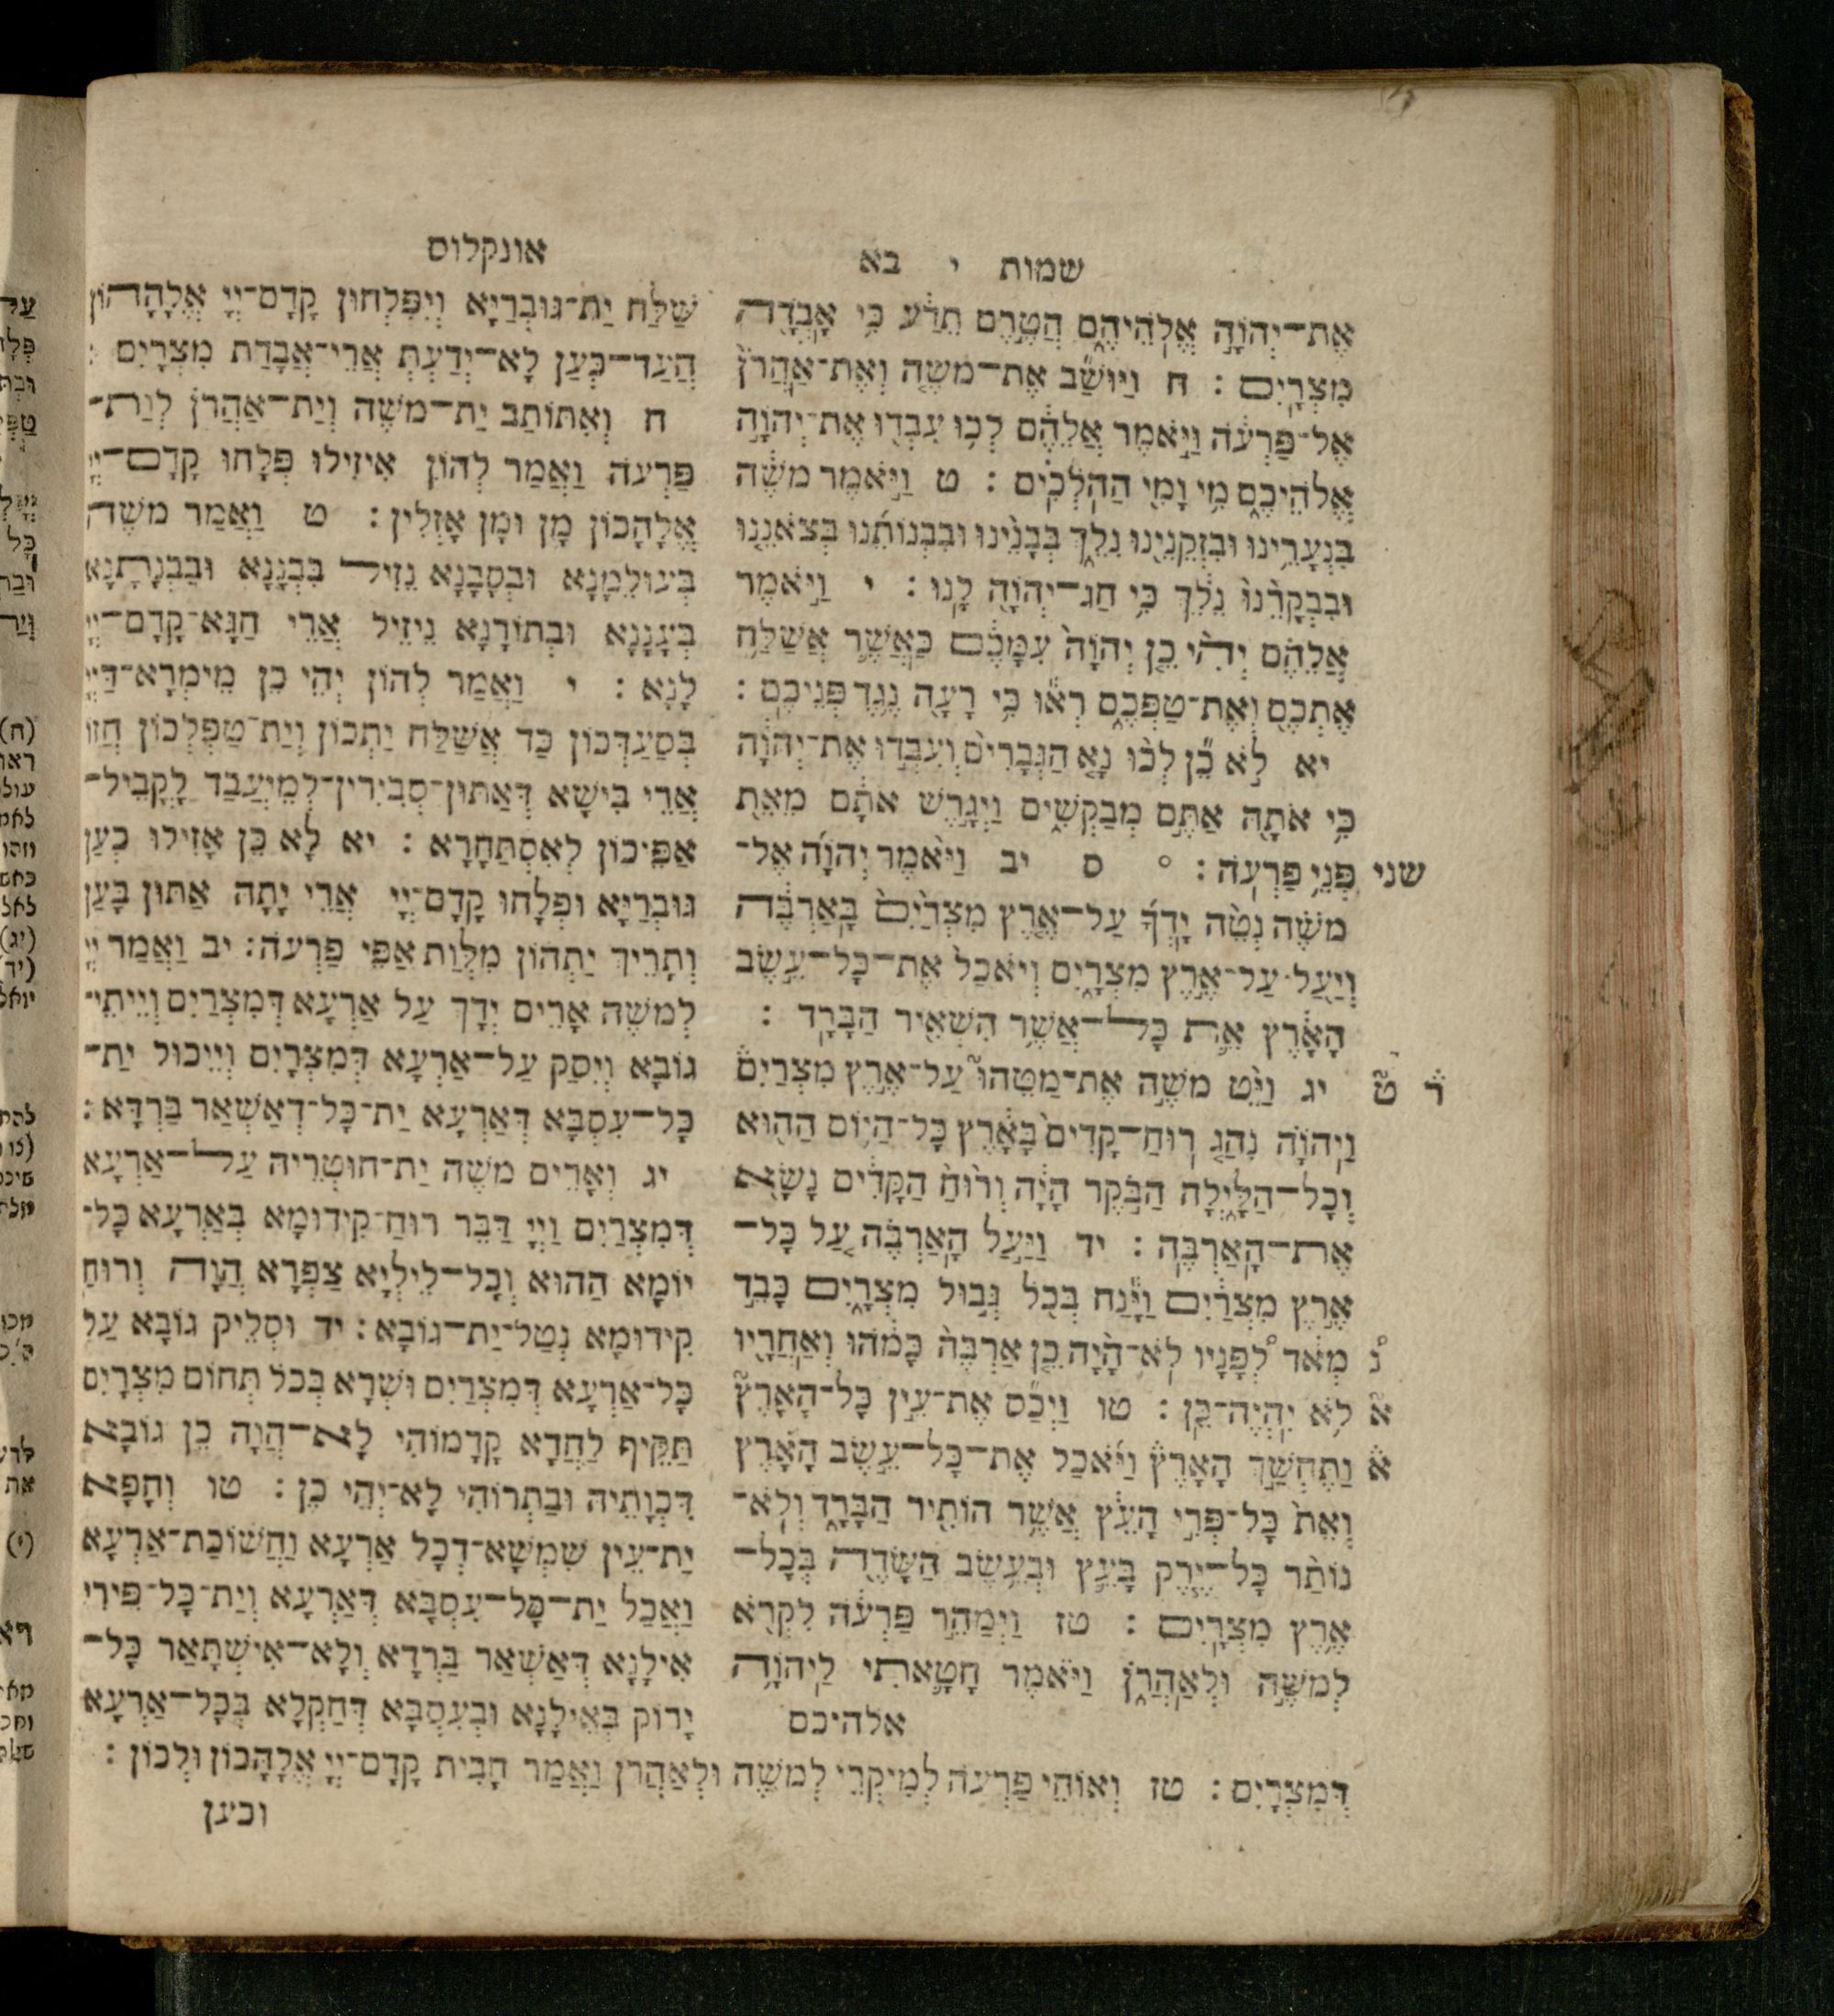 שמות י בא
אֶת־יְהוָ֣ה אֱלֹֽהֵיהֶ֑ם הֲטֶ֣רֶם תֵּדַ֔ע כִּ֥י אָבְדָ֖ה
מִצְרָֽיִם : ח וַיּוּשַׁ֞ב אֶת־מֹשֶׁ֤ה וְאֶֽת־אַהֲרֹן֙
אֶל־פַּרְעֹ֔ה וַיֹּ֣אמֶר אֲלֵהֶ֔ם לְכ֥וּ עִבְד֖וּ אֶת־יְהוָ֣ה
אֱלֹהֵיכֶ֑ם מִ֥י וָמִ֖י הַהֹלְכִֽים : ט וַיֹּ֣אמֶר מֹשֶׁ֔ה
בִּנְעָרֵ֥ינוּ וּבִזְקֵנֵ֖ינוּ נֵלֵ֑ךְ בְּבָנֵ֨ינוּ וּבִבְנוֹתֵ֜נוּ בְּצֹאנֵ֤נוּ
וּבִבְקָרֵ֙נוּ֙ נֵלֵ֔ךְ כִּ֥י חַג־יְהוָ֖ה לָֽנוּ : י וַיֹּ֣אמֶר
אֲלֵהֶ֗ם יְהִ֨י כֵ֤ן יְהוָה֙ עִמָּכֶ֔ם כַּאֲשֶׁ֛ר אֲשַׁלַּ֥ח
אֶתְכֶ֖ם וְאֶֽת־טַפְּכֶ֑ם רְא֕וּ כִּ֥י רָעָ֖ה נֶ֥גֶד פְּנֵיכֶֽם :
יא לֹ֣א כֵ֗ן לְכ֨וּ נָ֤א הַגְּבָרִים֙ וְעִבְד֣וּ אֶת־יְהוָ֔ה
כִּ֥י אֹתָ֖הּ אַתֶּ֣ם מְבַקְשִׁ֑ים וַיְגָ֣רֶשׁ אֹתָ֔ם מֵאֵ֖ת
שני פְּנֵ֥י פַרְעֹֽה : ° ס יב וַיֹּ֨אמֶר יְהוָ֜ה אֶל־
מֹשֶׁ֗ה נְטֵ֨ה יָדְךָ֜ עַל־אֶ֤רֶץ מִצְרַ֙יִם֙ בָּֽאַרְבֶּ֔ה
וְיַ֖עַל עַל־אֶ֣רֶץ מִצְרָ֑יִם וְיֹאכַל֙ אֶת־כָּל־עֵ֣שֶׂב
הָאָ֔רֶץ אֵ֛ת כָּל־אֲשֶׁ֥ר הִשְׁאִ֖יר הַבָּרָֽד :
ר ט יג וַיֵּ֨ט מֹשֶׁ֣ה אֶת־מַטֵּהוּ֮ עַל־אֶ֣רֶץ מִצְרַיִם֒
וַֽיהוָ֗ה נִהַ֤ג רֽוּחַ־קָדִים֙ בָּאָ֔רֶץ כָּל־הַיּ֥וֹם הַה֖וּא
וְכָל־הַלָּ֑יְלָה הַבֹּ֣קֶר הָיָ֔ה וְר֙וּחַ֙ הַקָּדִ֔ים נָשָׂ֖א
אֶת־הָאַרְבֶּֽה : יד וַיַּ֣עַל הָֽאַרְבֶּ֗ה עַ֚ל כָּל־
אֶ֣רֶץ מִצְרַ֔יִם וַיָּ֕נַח בְּכֹ֖ל גְּב֣וּל מִצְרָ֑יִם כָּבֵ֣ד
נ מְאֹ֔ד לְפָנָיו לֹא־הָ֨יָה כֵ֤ן אַרְבֶּה֙ כָּמֹ֔הוּ וְאַחֲרָ֖יו
א לֹ֥א יִֽהְיֶה־כֵּֽן : טו וַיְכַ֞ס אֶת־עֵ֣ין כָּל־הָאָרֶץ֮
א וַתֶּחְשַׁ֣ךְ הָאָרֶץ֒ וַיֹּ֜אכַל אֶת־כָּל־עֵ֣שֶׂב הָאָ֗רֶץ
וְאֵת֙ כָּל־פְּרִ֣י הָעֵ֔ץ אֲשֶׁ֥ר הוֹתִ֖יר הַבָּרָ֑ד וְלֹא־
נוֹתַ֨ר כָּל־יֶ֧רֶק בָּעֵ֛ץ וּבְעֵ֥שֶׂב הַשָּׂדֶ֖ה בְּכָל־
אֶ֥רֶץ מִצְרָֽיִם : טז וַיְמַהֵ֣ר פַּרְעֹ֔ה לִקְרֹ֖א
לְמֹשֶׁ֣ה וּֽלְאַהֲרֹ֑ן וַיֹּ֗אמֶר חָטָ֛אתִי לַיהוָ֥ה
אלהיכם
אונקלוס
שַׁלַּח יַת־גּוּבְרַיָּא וְיִפְלְחוּן קֳדָם־יְיָ אֱלָהֲהוֹן
הַעַד־כְּעַן לָא־יְדַעַתְּ אֲרֵי־אֲבָדַת מִצְרָיִם :
ח וְאִתּוֹתַב יַת־משֶׁה וְיַת־אַהֲרֹן לְוַת־
פַּרְעֹה וַאֲמַר לְהוֹן אִיזִילוּ פְּלָחוּ קֳדָם־יְיָ
אֱלָהָכוֹן מָן וּמָן אָזְלִין : ט וַאֲמַר משֶׁה
בְּעוּלֵמָנָא וּבְסָבָנָא נֵזִיל בִּבְנָנָא וּבִבְנָתָנָא
בְּעָנָנָא וּבְתוֹרָנָא נֵיזֵיל אֲרֵי חַגָּא־קֳדָם־יְיָ
לָנָא : י וַאֲמַר לְהוֹן יְהֵי כֵן מֵימְרָא־דַיְיָ
בְּסַעַדְּכוֹן כַּד אֲשַׁלַּח יַתְכוֹן וְיַת־טַפְלְכוֹן חֲזוּ
אֲרֵי בִישָׁא דְּאַתּוּן־סְבִירִין־לְמֵיעֲבַד לָקֳבֵיל־
אַפֵּיכוֹן לְאִסְתַּחָרָא : יא לָא כֵן אָזִילוּ כְעַן
גּוּבְרַיָּא וּפְלָחוּ קֳדָם־יְיָ אֲרֵי יָתָהּ אַתּוּן בָּעַן
וְתָרֵיךְ יַתְהוֹן מִלְּוַת אַפֵּי פַרְעֹה: יב וַאֲמַר יְיָ
לְמשֶׁה אָרֵים יְדָךְ עַל אַרְעָא דְּמִצְרַיִם וְיֵיתֵי־
גוֹבָא וְיִסַק עַל־אַרְעָא דְּמִצְרָיִם וְיֵיכוּל יַת־
כָּל־עִסְבָּא דְּאַרְעָא יַת־כָּל־דְּאַשְׁאַר בַּרְדָּא :
יג וַאֲרֵים משֶׁה יַת־חוּטְרֵיהּ עַל־אַרְעָא
דְּמִצְרַיִם וַיְיָ דַּבֵּר רוּחַ־קִידוּמָא בְּאַרְעָא כָּל־
יוֹמָא הַהוּא וְכָל־לֵילְיָא צַפְרָא הֲוָה וְרוּחַ
קִידוּמָא נְטַל־יַת־גּוֹבָא : יד וּסְלֵיק גּוֹבָא עַל
כָּל־אַרְעָא דְּמִצְרַיִם וּשְׁרָא בְּכֹל תְּחוּם מִצְרָיִם
תַּקִּיף לַחֲדָא קֳדָמוֹהִי לָא־הֲוָה כֵן גּוֹבָא
דִּכְוָתֵיהּ וּבַתְרוֹהִי לָא־יְהֵי כֵן : טו וַחֲפָא
יַת־עֵין שִׁמְשָׁא־דְכָל אַרְעָא וַחֲשׁוֹכַת־אַרְעָא
וַאֲכַל יַת־כָּל־עִסְבָּא דְּאַרְעָא וְיַת־כָּל־פֵּירֵי
אִילָנָא דְּאַשְׁאַר בַּרְדָא וְלָא־אִישְׁתָּאַר כָּל־
יָרוֹק בְּאִילָנָא וּבְעִסְבָּא דְּחַקְלָא בְּכָל־אַרְעָא
דְּמִצְרָיִם : טז וְאוֹחֵי פַרְעֹה לְמִיקְרֵי לְמשֶׁה וּלְאַהֲרֹן וַאֲמַר חָבִית קֳדָם־יְיָ אֱלָהֲכוֹן וּלְכוֹן :
וכען